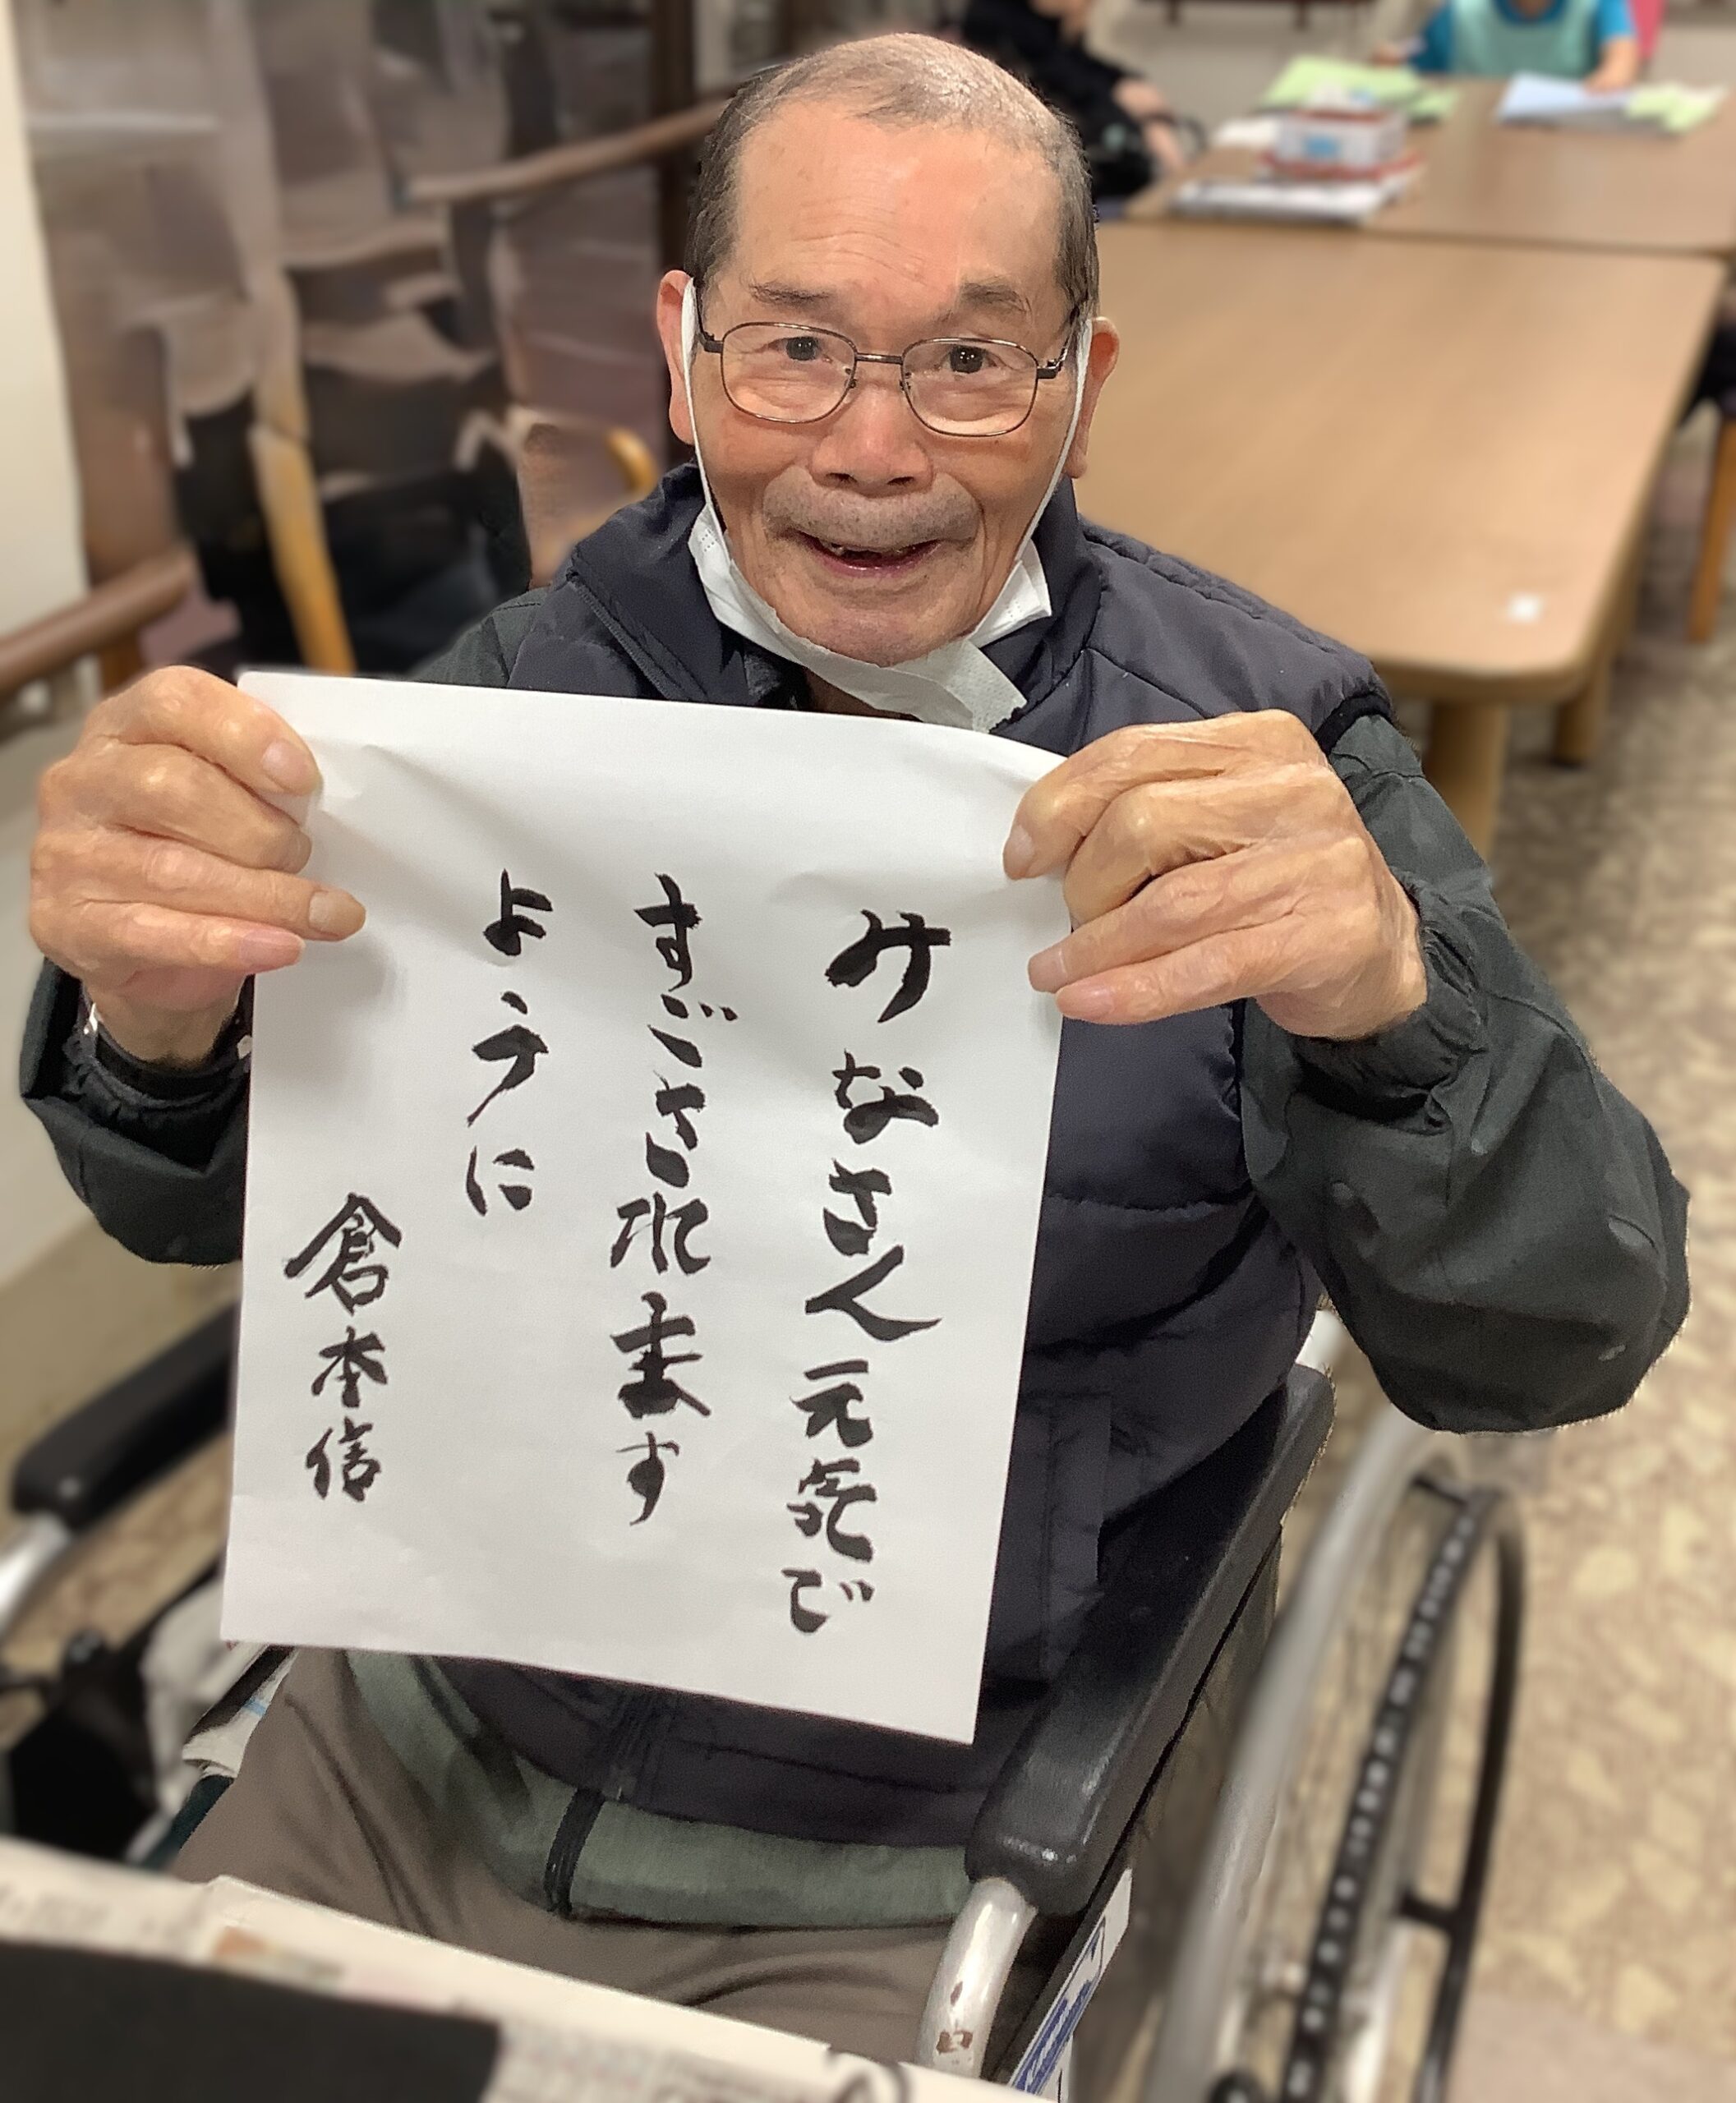 みなさん元気で
すごされます
ように
倉本信